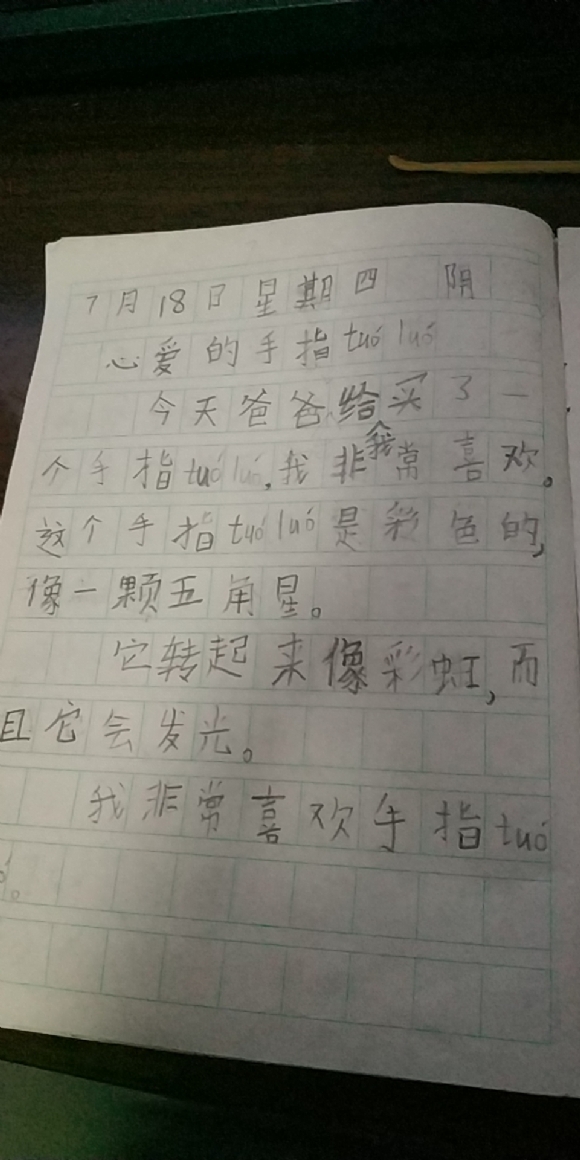 7月18日 星期四 阴
心爱的手指tuó luó
今天爸爸给我买了一
个手指tuó luó,我非常喜欢。
这个手指tuó luó是彩色的,
像一颗五角星。
它转起来像彩虹,而
且它会发光。
我非常喜欢手指tuó
ó。